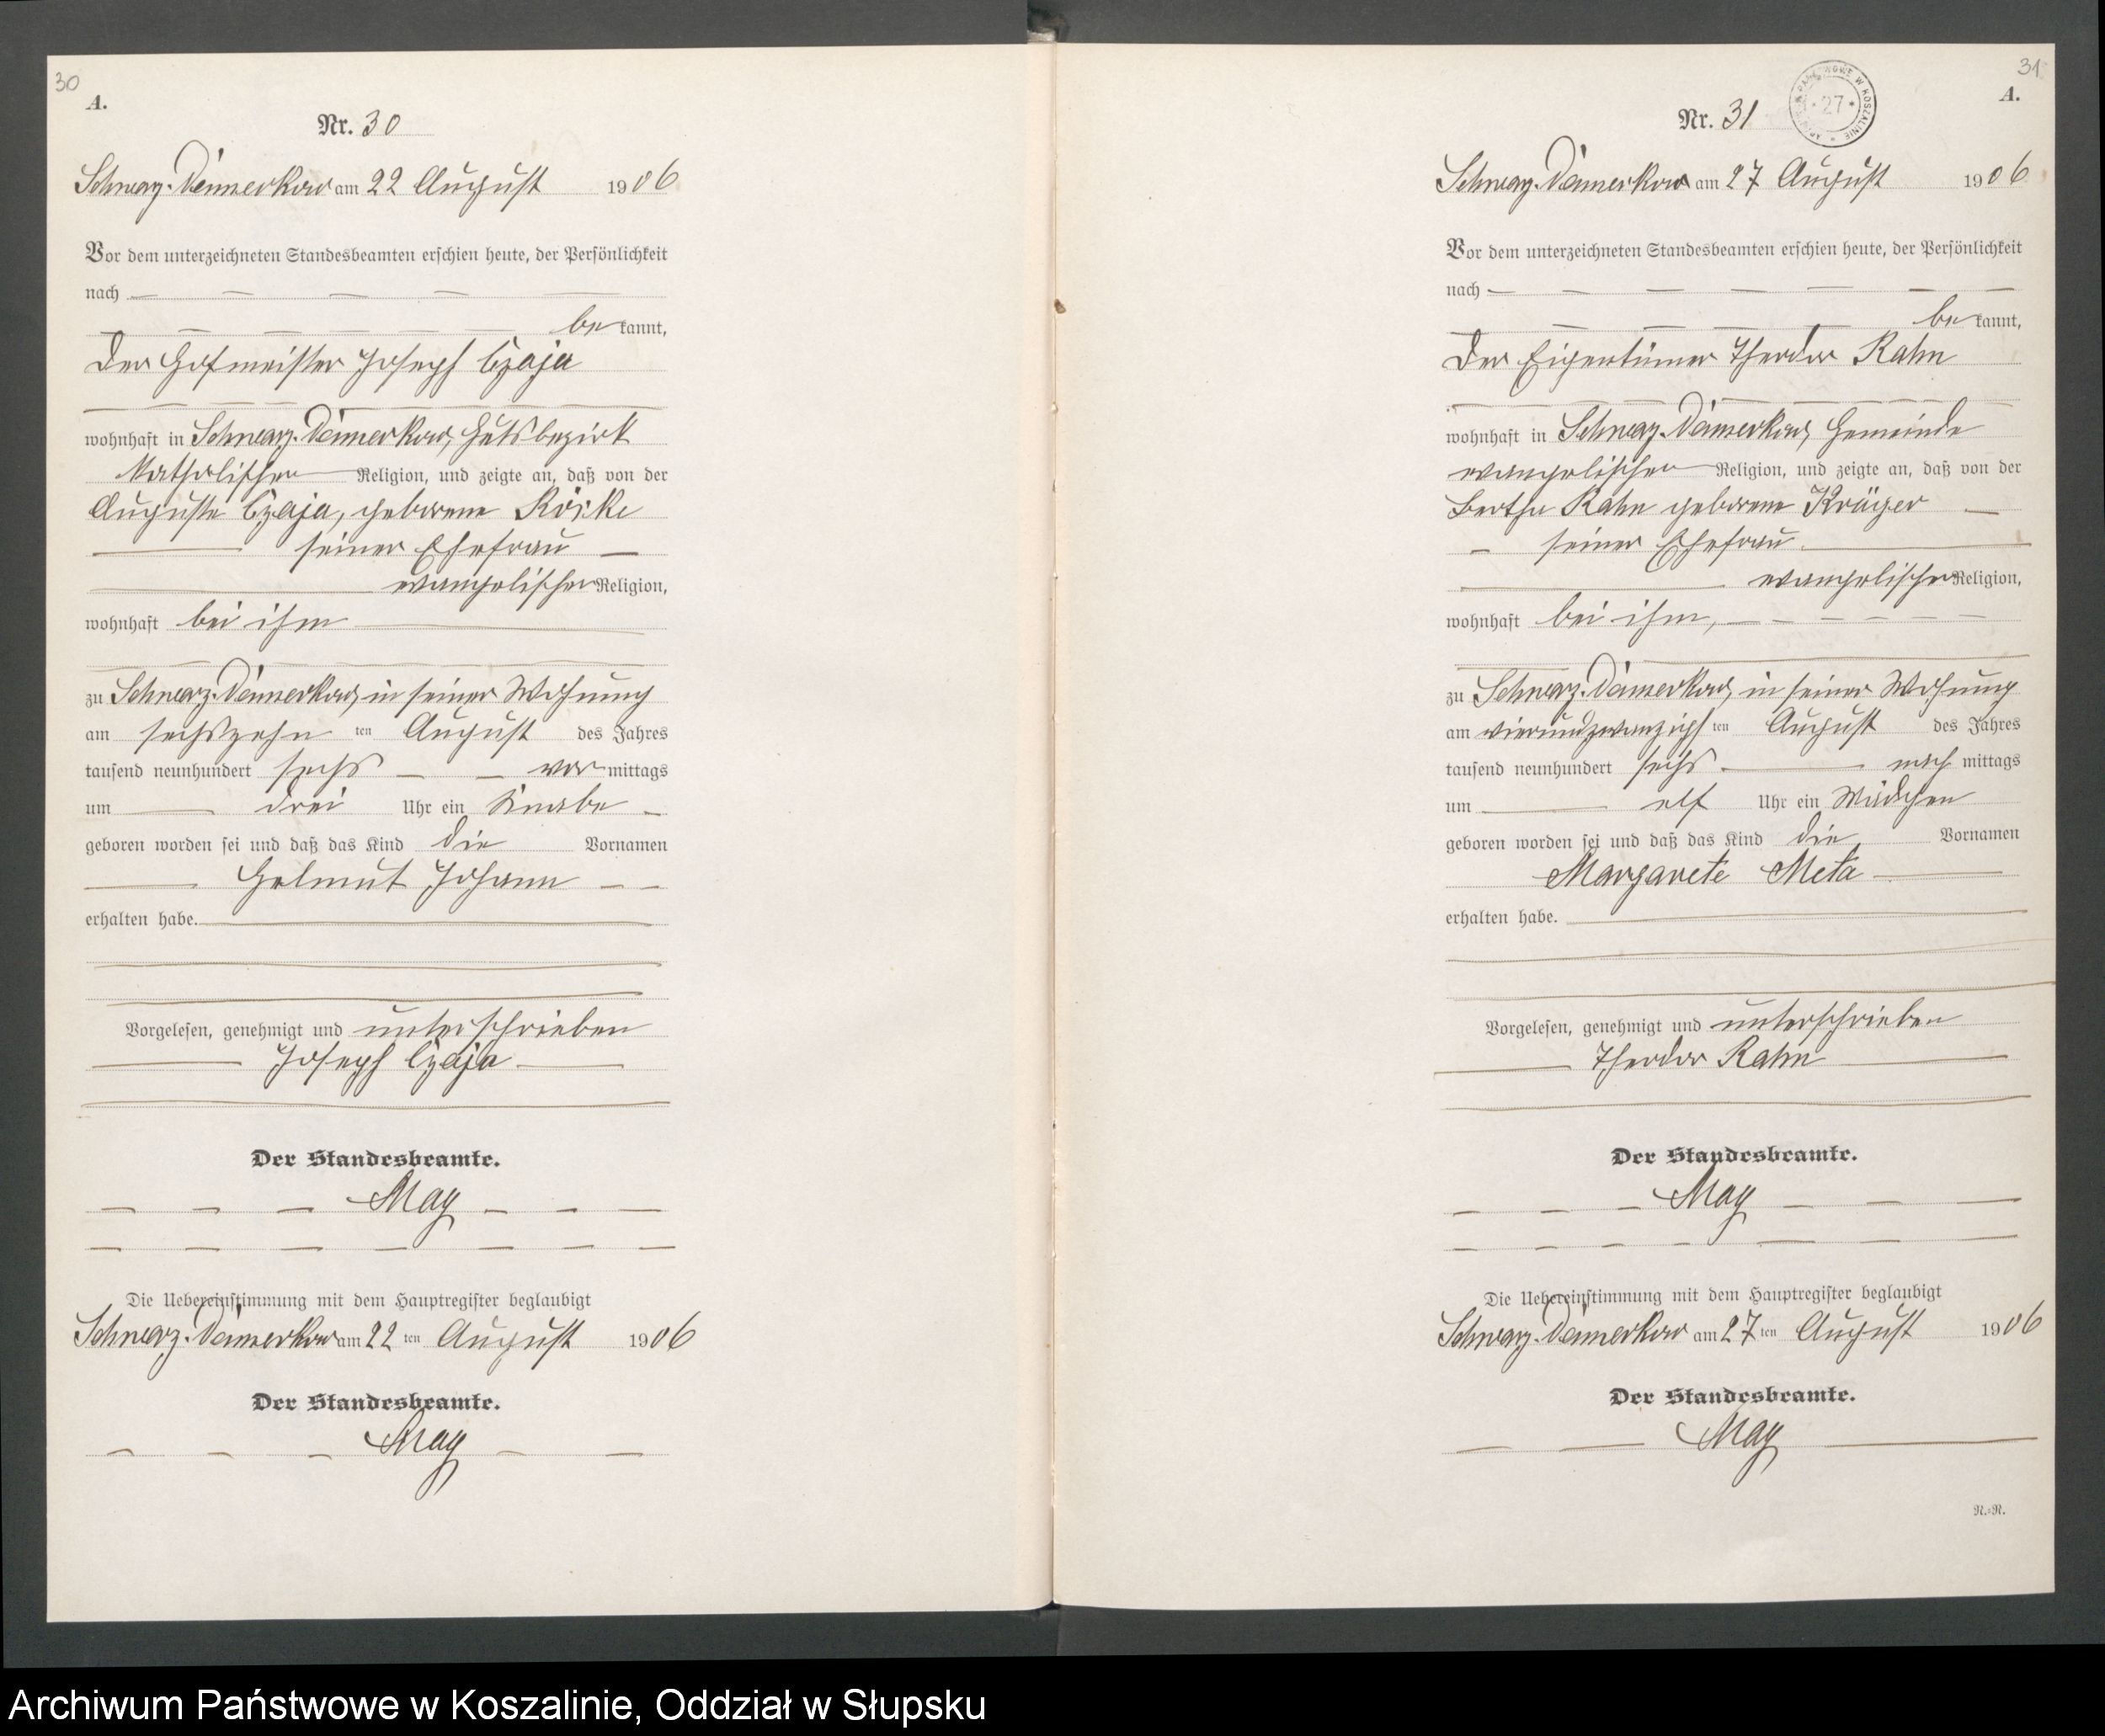 30
A.
Nr. 30
Schwarz-Damerkow am 22 August 1906
Vor dem unterzeichneten Standesbeamten erschien heute, der Persönlichkeit
nach
bekannt,
der Hofmeister Joseph Czaja
wohnhaft in Schwarz-Damerkow, Gutsbezirk
katholischer Religion, und zeigte an, daß von der
Auguste Czaja, geborene
seiner Ehefrau
evangelischer Religion,
wohnhaft bei ihm
zu Schwarz-Damerkow, in seiner Wohnung
am sechszehnten August des Jahres
tausend neunhundert sechs vormittags
um drei Uhr ein Knabe
geboren worden sei und daß das Kind die Vornamen
Helmut Johann
erhalten habe.
Vorgelesen, genehmigt und unterschrieben
Joseph Czaja
Der Standesbeamte.
May
Die Uebereinstimmung mit dem Hauptregister beglaubigt
Schwarz-Damerkow am 22ten August 1906
Der Standesbeamte.
May
31
A.
Nr. 31
ARCHIWUM PAŃSTWOWE W KOSZALINIE
* 27 *
Schwarz-Damerkow am 27 August 1906
Vor dem unterzeichneten Standesbeamten erschien heute, der Persönlichkeit
nach
bekannt,
der Eigentümer Theodor Rahn
wohnhaft in Schwarz-Damerkow, Gemeinde
evangelischer Religion, und zeigte an, daß von der
Bertha Rahn geborene Kräger
seiner Ehefrau
evangelischer Religion,
wohnhaft bei ihm,
zu Schwarz-Damerkow, in seiner Wohnung
am vierundzwanzigsten August des Jahres
tausend neunhundert sechs nachmittags
um elf Uhr ein Mädchen
geboren worden sei und daß das Kind die Vornamen
Margarete Meta
erhalten habe.
Vorgelesen, genehmigt und unterschrieben
Theodor Rahn
Der Standesbeamte.
May
Die Uebereinstimmung mit dem Hauptregister beglaubigt
Schwarz-Damerkow am 27ten August 1906
Der Standesbeamte.
May
R.=R.
Archiwum Państwowe w Koszalinie, Oddział w Słupsku